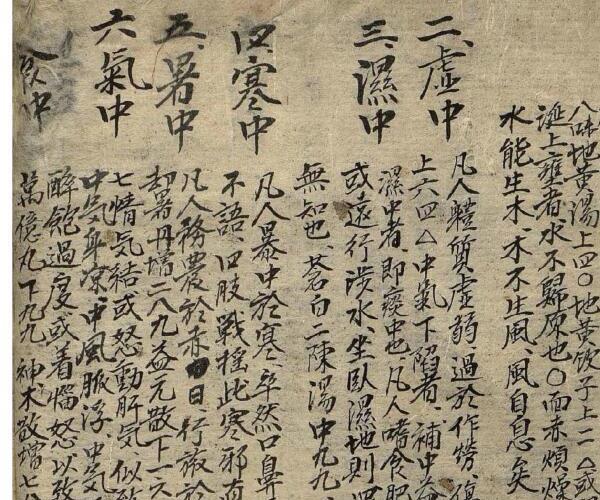 八味地黃湯上四〇地黃飲子上一△或
涎上壅者水不歸原也〇面赤煩燥
水能生木、木不生風、風自息矣
二、虛中 凡人軆質虛弱過於作勞、
上六四△中氣下陷者、補中
三、濕中 濕中者、即痰中也、凡人嗜食肥
或遠行涉水、坐臥濕地則
無知也、蒼白二陳湯中九九、
四、寒中 凡人暴中於寒、卒然口鼻
不語、四肢戰搖此寒邪
五、暑中 凡人務農於赤日、行旅於
却暑丹增二八九益元散下一六
六氣中 七情気結或怒動肝気、似
中気身凉、中風脈浮、中気
食中 醉飽過度或着惱怒以致
萬億丸下九九神木散增七